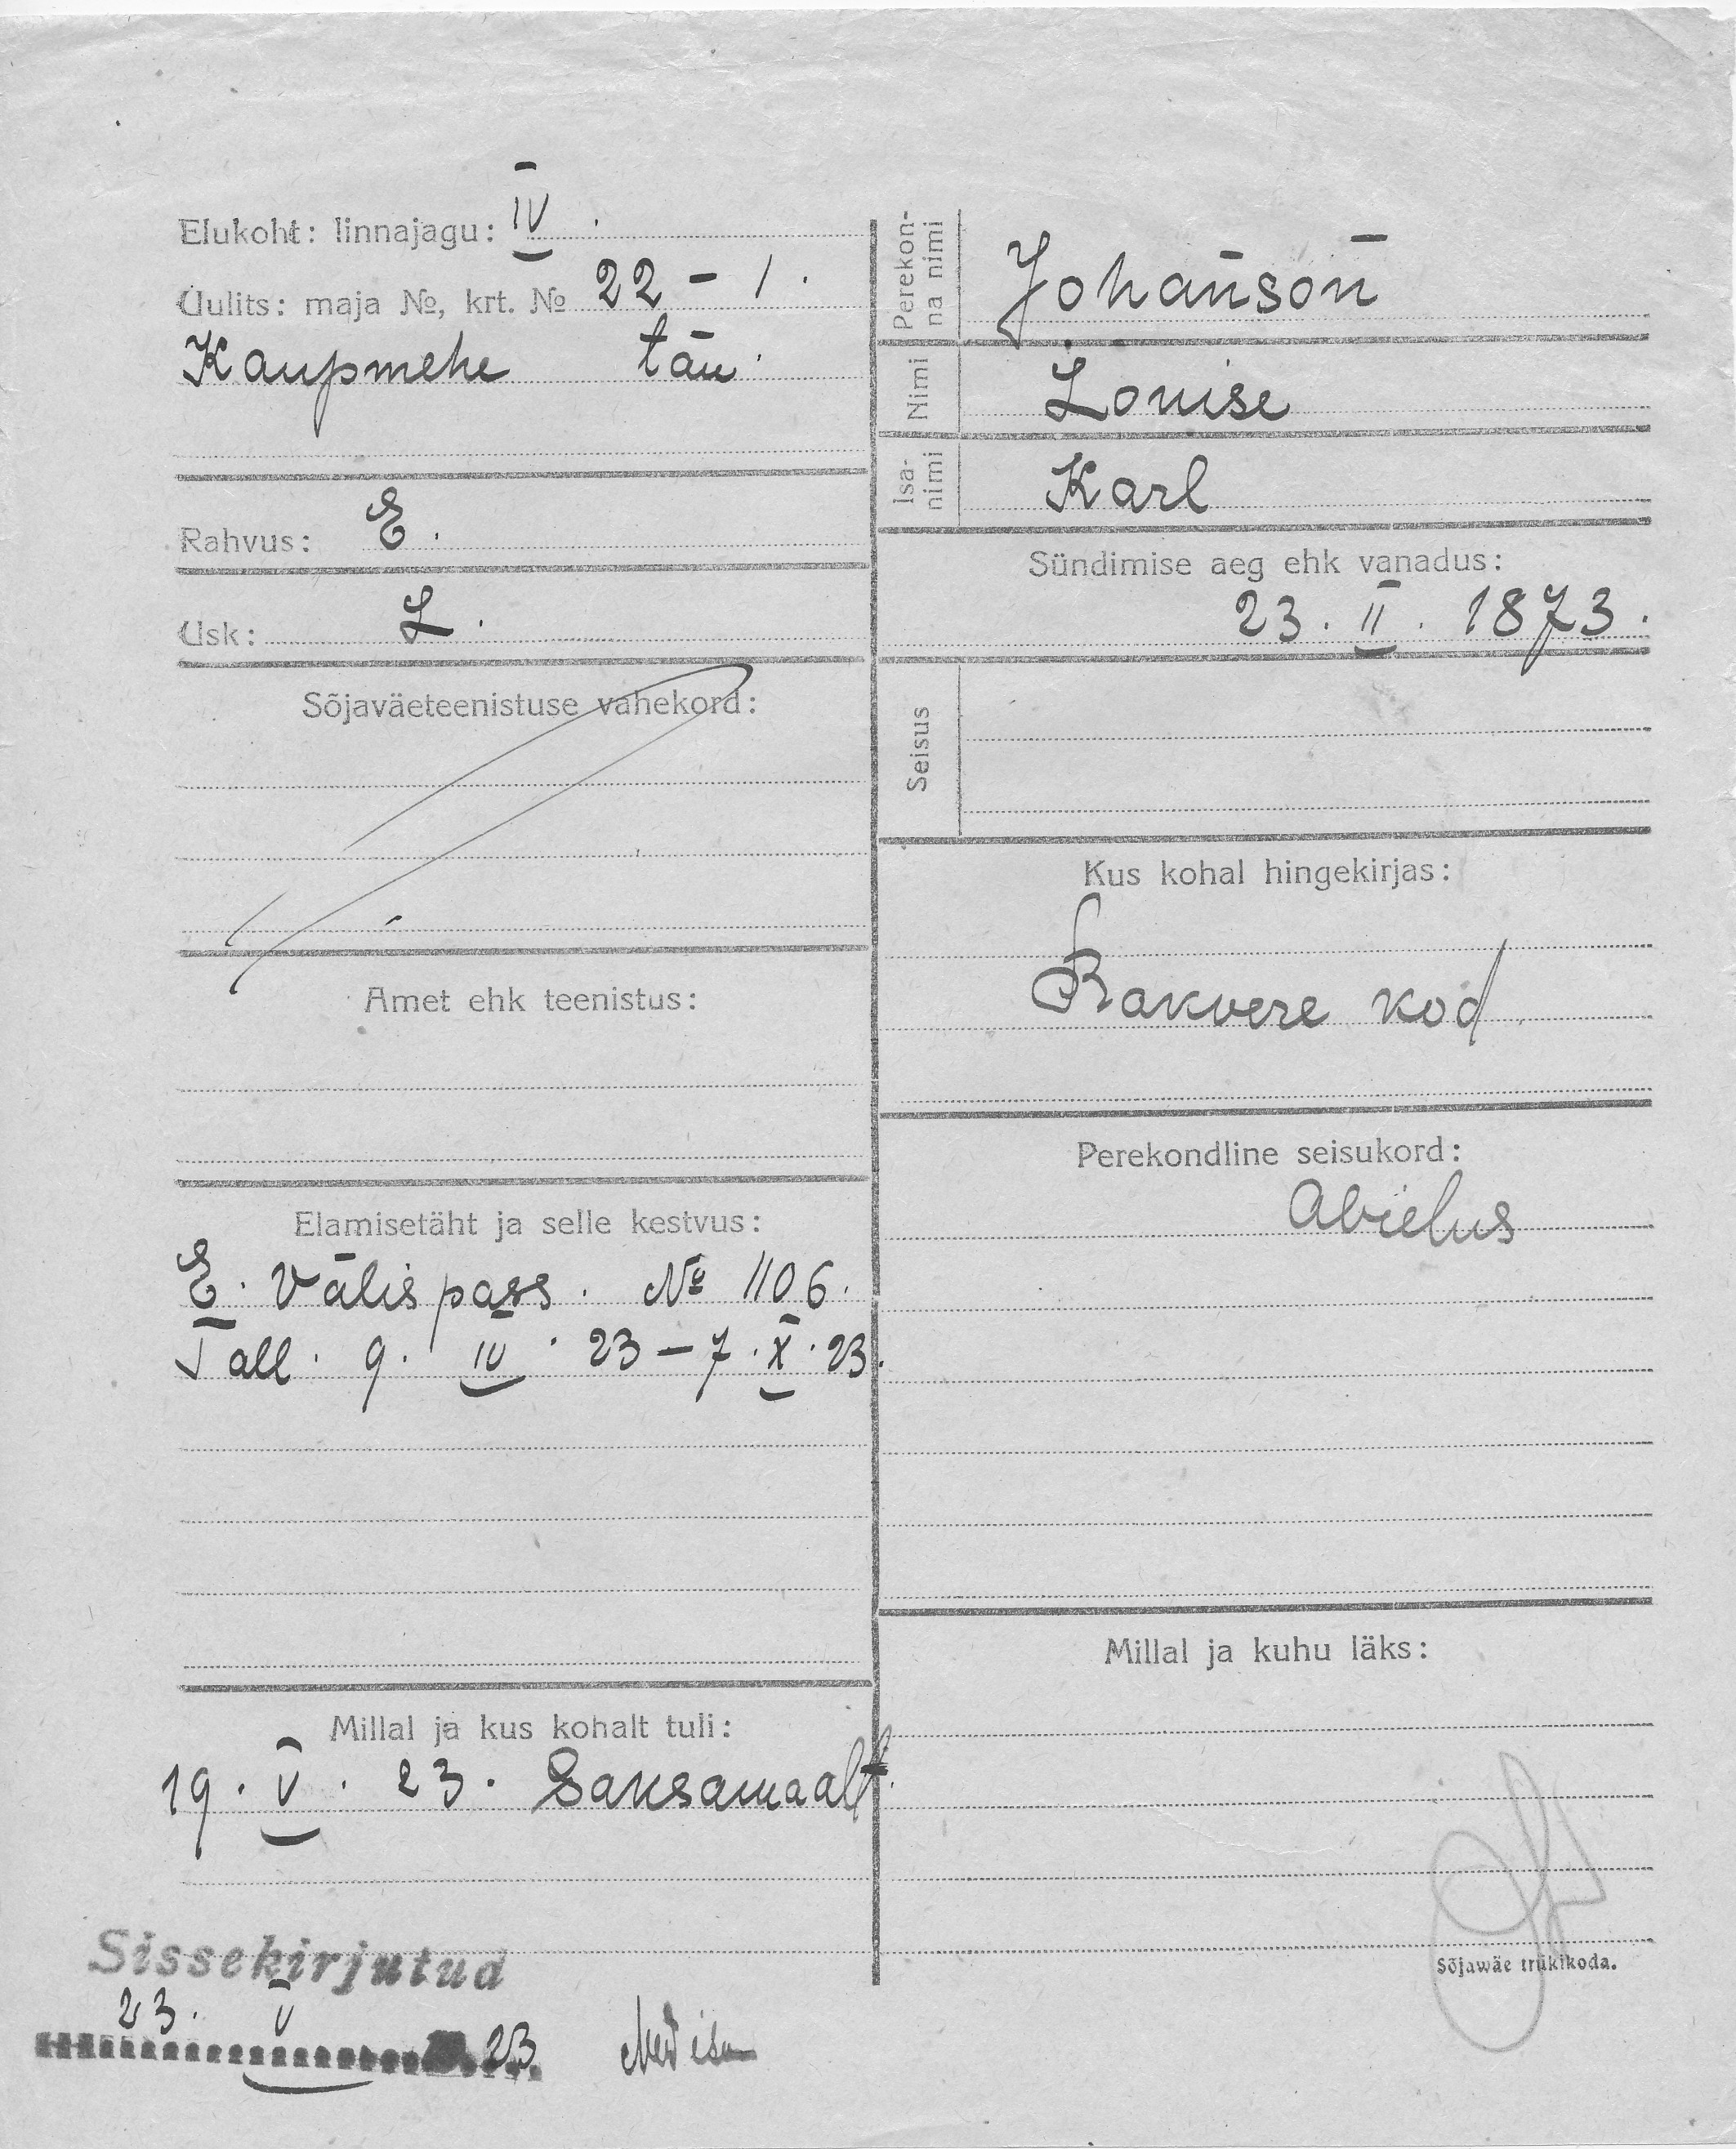 Elukoht: linnajagu: IV.
Uulits: maja №, krt. № 22 – 1.
Kaupmehe tän.
Rahvus: E.
Usk: L.
Sõjaväeteenistuse vahekord:
Amet ehk teenistus:
Elamisetäht ja selle kestvus:
E. Välispass. № 1106.
Tall. 9. IV. 23 – 7. X. 23.
Millal ja kus kohalt tuli:
19. V. 23. Saksamaalt.
Sissekirjutud
23. V 23.
Perekon-
na nimi
Johanson
Nimi
Louise
Isa-
nimi
Karl
Sündimise aeg ehk vanadus:
23. II. 1873.
Seisus
Kus kohal hingekirjas:
Rakvere kod.
Perekondline seisukord:
Abielus
Millal ja kuhu läks:
Sõjawäe trükikoda.